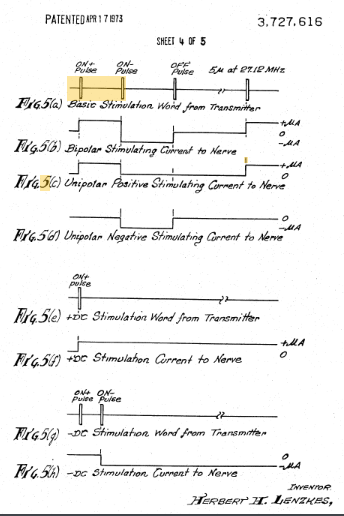 PATENTED APR 17 1973
3,727,616
SHEET 4 OF 5
ON+ Pulse
ON- Pulse
OFF Pulse
5μ at 27.12 MHz
FIG.5(a) Basic Stimulation Word from Transmitter
+μA
0
-μA
FIG.5(b) Bipolar Stimulating Current to Nerve
+μA
0
FIG.5(c) Unipolar Positive Stimulating Current to Nerve
0
-μA
FIG.5(d) Unipolar Negative Stimulating Current to Nerve
ON+ pulse
FIG.5(e) +DC Stimulation Word from Transmitter
+μA
0
FIG.5(f) +DC Stimulation Current to Nerve
ON+ Pulse
ON- Pulse
FIG.5(g) -DC Stimulation Word from Transmitter
0
-μA
FIG.5(h) -DC Stimulation Current to Nerve
INVENTOR
HERBERT H. LENZKES,